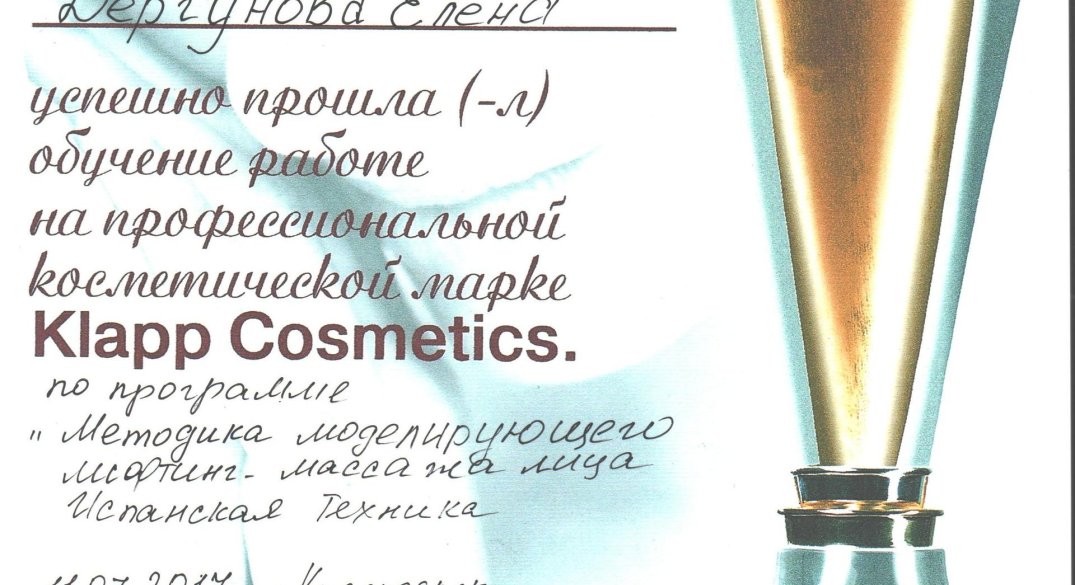 Дергунова Елена
успешно прошла (-л)
обучение работе
на профессиональной
косметической марке
Klapp Cosmetics.
по программе
" Методика моделирующего
лифтинг - массажа лица
Испанская Техника